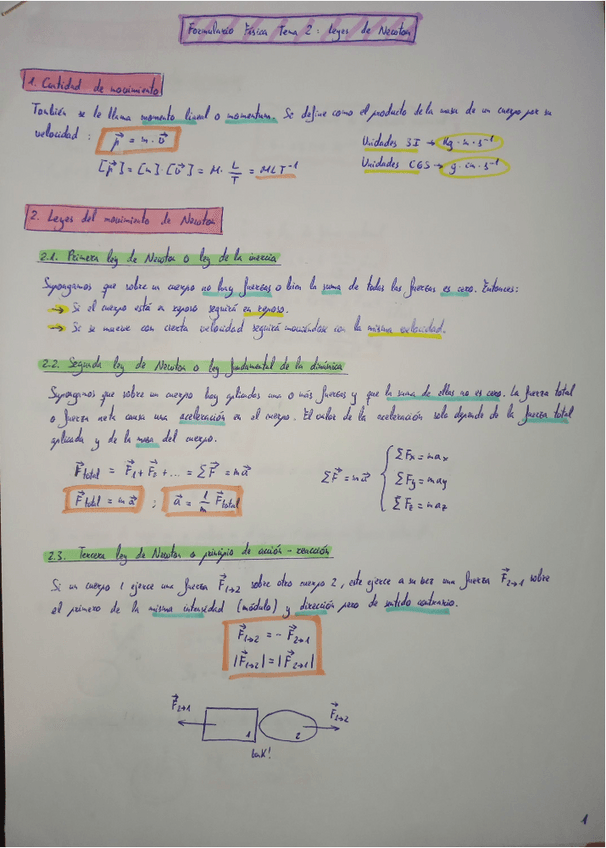 Formulario Física Tema 2: Leyes de Newton
1. Cantidad de movimiento
También se le llama momento lineal o momentum. Se define como el producto de la masa de un cuerpo por su
velocidad: p⃗ = m · v⃗
Unidades SI → Kg · m · s⁻¹
[p⃗] = [m] · [v⃗] = M · L/T = MLT⁻¹
Unidades CGS → g · cm · s⁻¹
2. Leyes del movimiento de Newton
2.1. Primera ley de Newton o ley de la inercia
Supongamos que sobre un cuerpo no hay fuerzas o bien la suma de todas las fuerzas es cero. Entonces:
→ Si el cuerpo está en reposo seguirá en reposo.
→ Si se mueve con cierta velocidad seguirá moviéndose con la misma velocidad.
2.2. Segunda ley de Newton o ley fundamental de la dinámica
Supongamos que sobre un cuerpo hay aplicados una o más fuerzas y que la suma de ellas no es cero. La fuerza total
o fuerza neta causa una aceleración en el cuerpo. El valor de la aceleración solo depende de la fuerza total
aplicada y de la masa del cuerpo.
F⃗total = F⃗1 + F⃗2 + ... = ΣF⃗ = ma⃗
F⃗total = ma⃗ ; a⃗ = 1/m F⃗total
ΣF⃗ = ma⃗
ΣFx = max
ΣFy = may
ΣFz = maz
2.3. Tercera ley de Newton o principio de acción-reacción
Si un cuerpo 1 ejerce una fuerza F⃗1→2 sobre otro cuerpo 2, este ejerce a su vez una fuerza F⃗2→1 sobre
el primero de la misma intensidad (módulo) y dirección pero de sentido contrario.
F⃗1→2 = - F⃗2→1
|F⃗1→2| = |F⃗2→1|
F⃗2→1
F⃗1→2
1
2
1